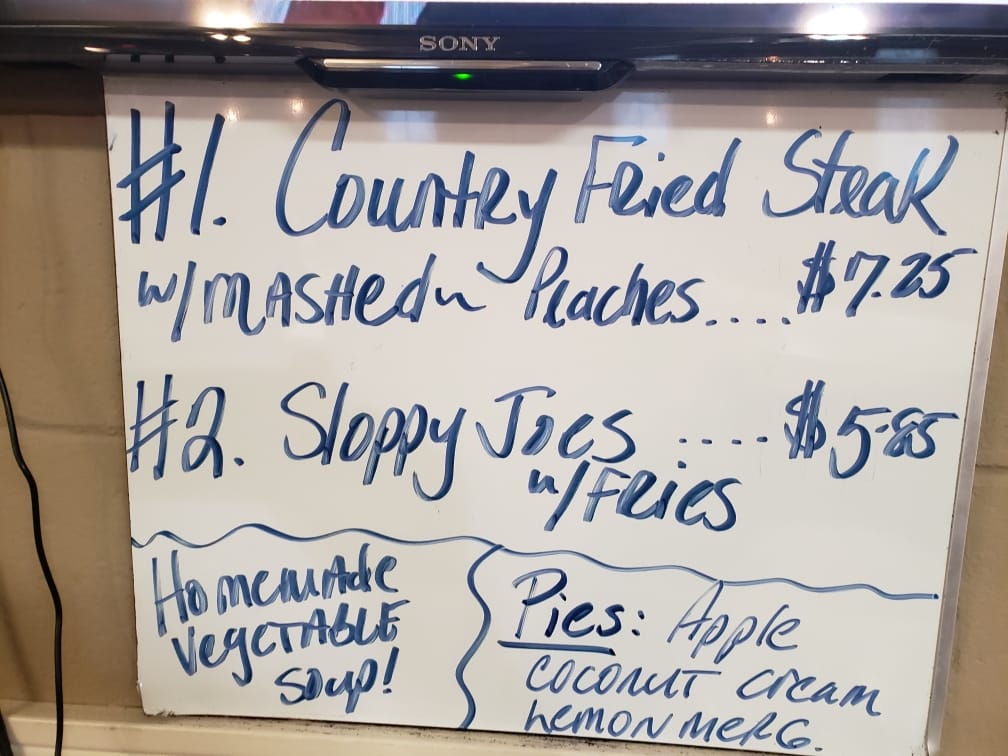 SONY
#1. Country Fried Steak
w/mashed~ Peaches....$7.25
#2. Sloppy Joes ..... $5.85
w/Fries
Homemade
vegetable
soup!
Pies: Apple
coconut cream
Lemon merg.